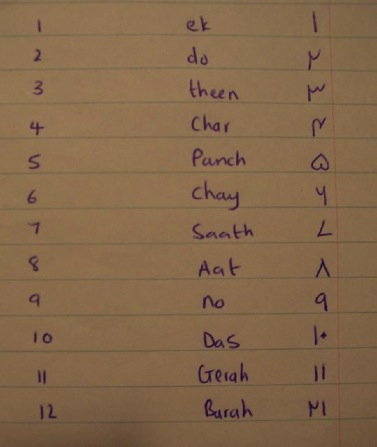 1 ek ۱
2 do ۲
3 theen ۳
4 Char ۴
5 Panch ۵
6 Chay ۶
7 Saath ۷
8 Aat ۸
9 no ۹
10 Das ۱۰
11 Gerah ۱۱
12 Barah ۱۲